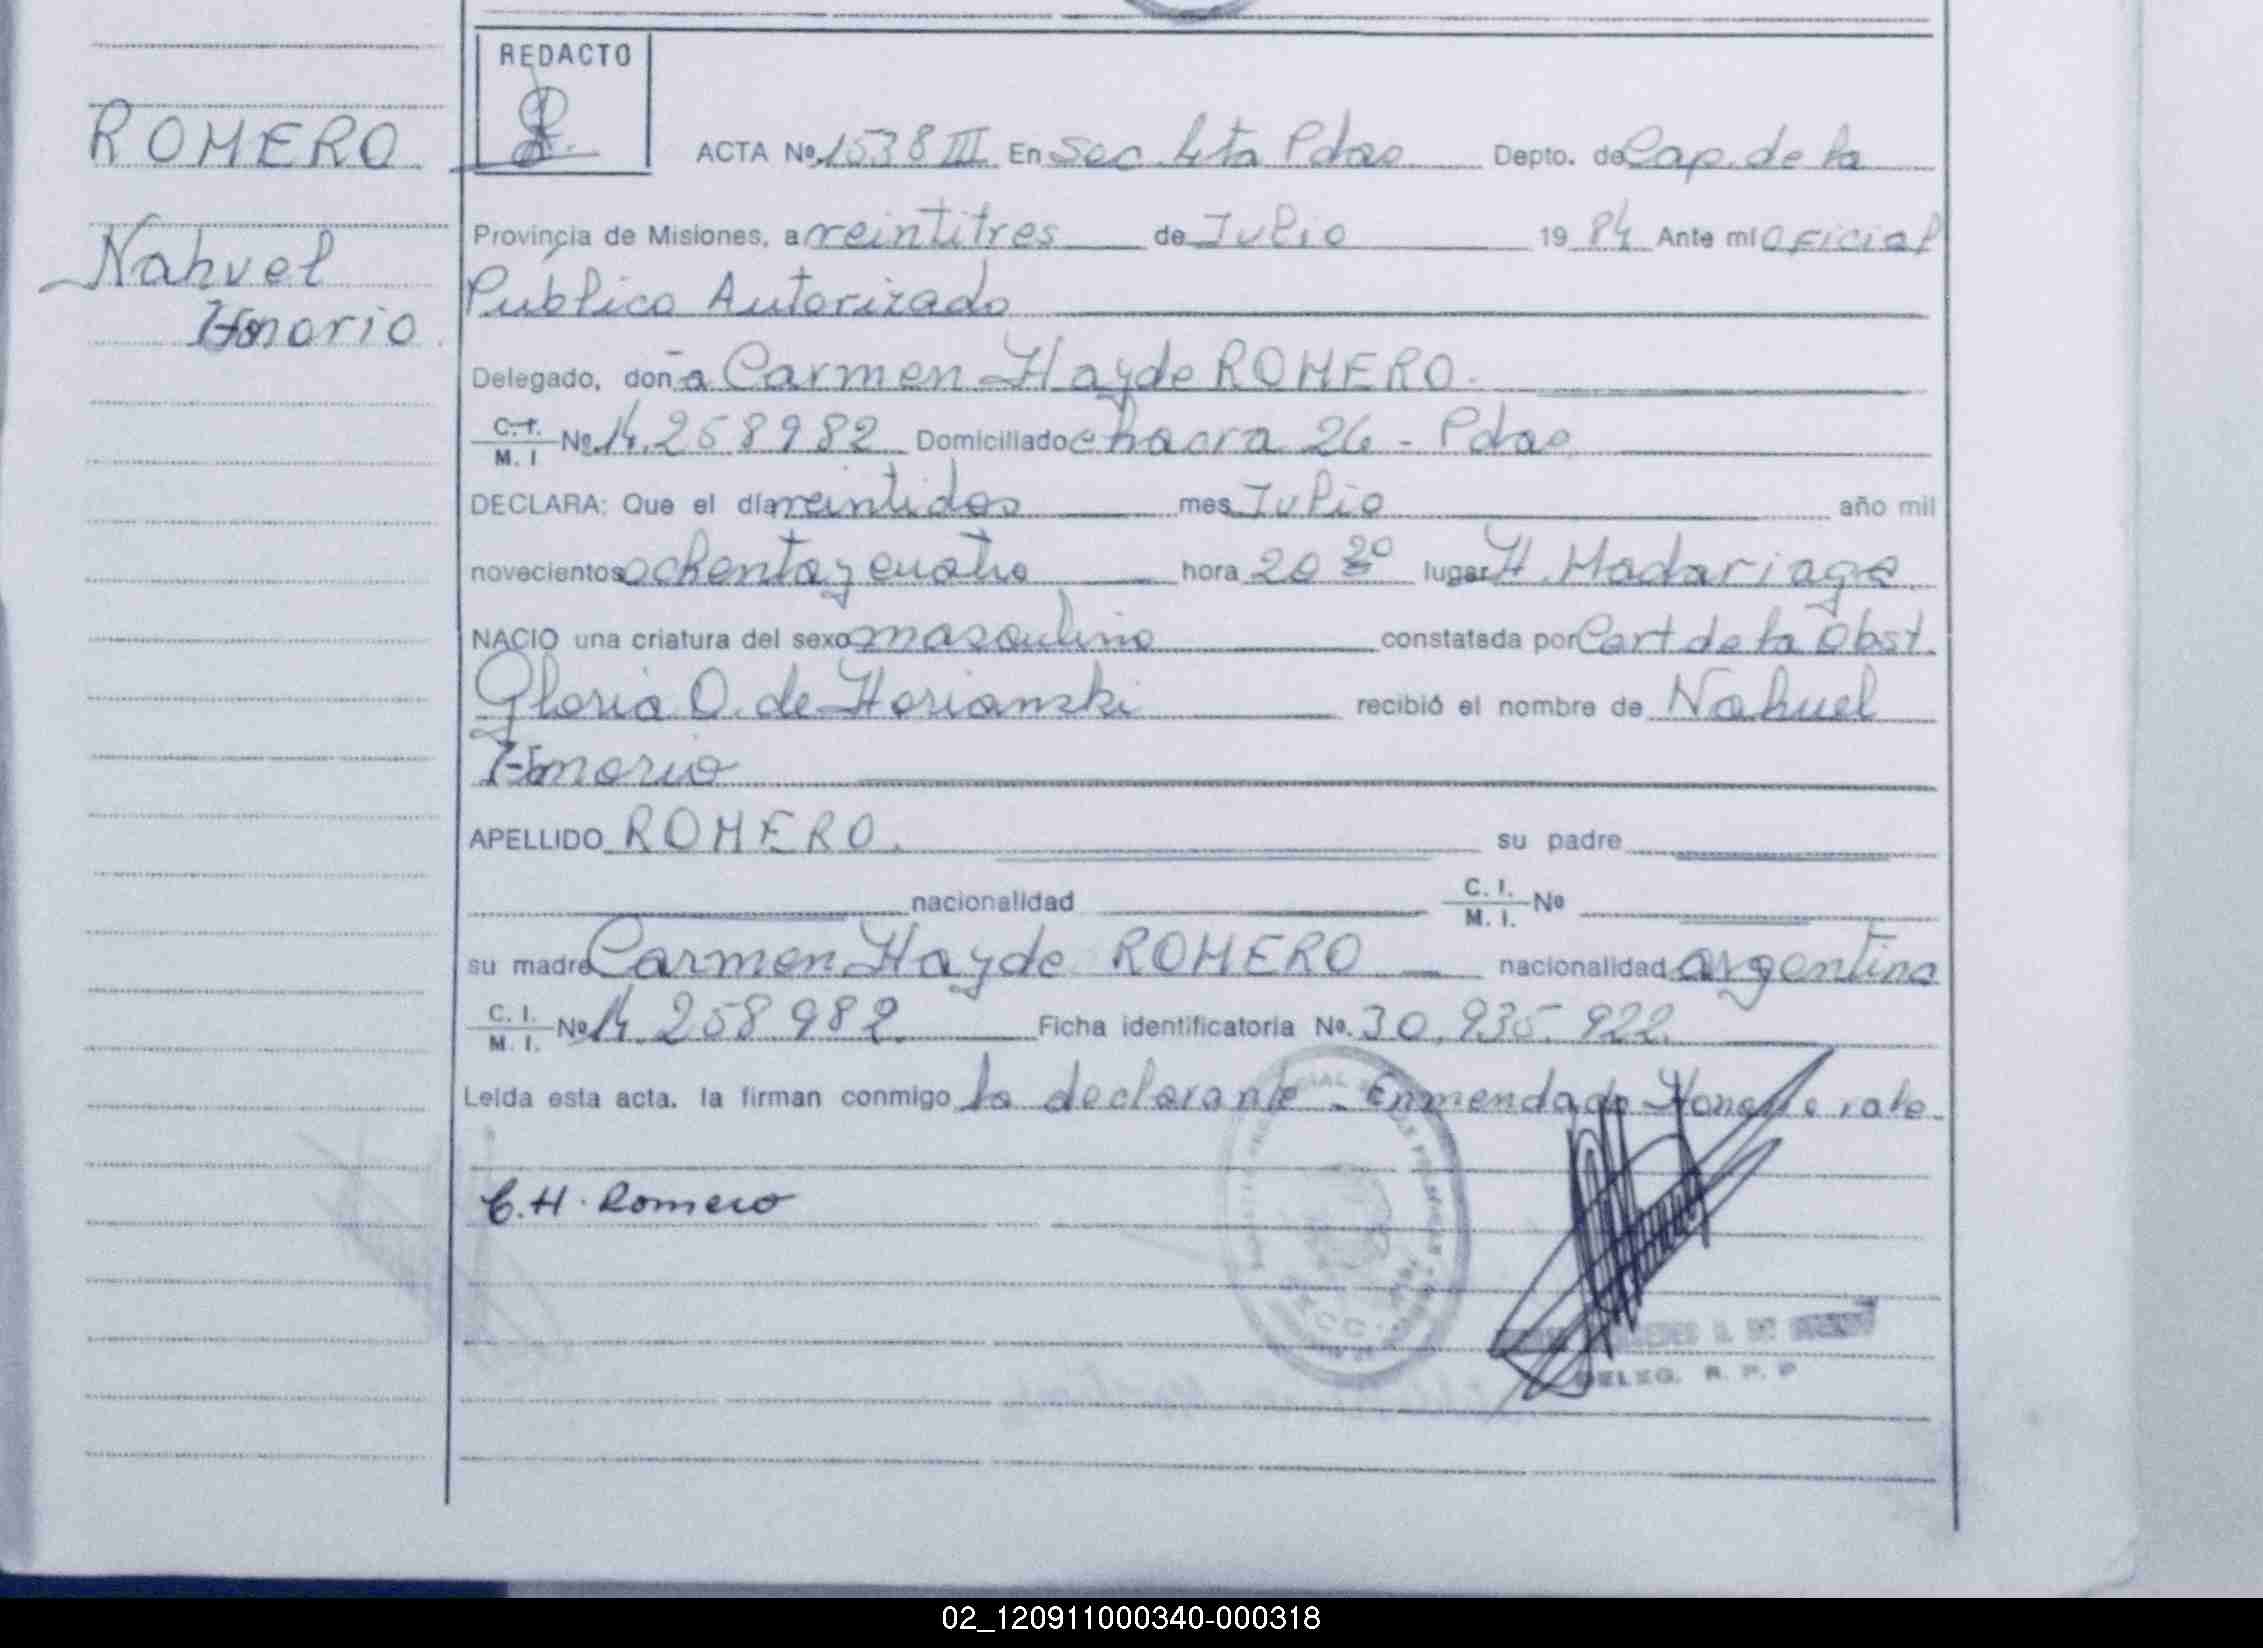 REDACTO
ROMERO
ACTA Nº 1538 III En Sec 4ta Pdas Depto. de Cap. de la
Nahuel
Provincia de Misiones, a veintitres de Julio 19 84 Ante mi Oficial
Publico Autorizado
Delegado, doña Carmen Hayde ROMERO.
C. I.
M. I Nº 14.258982 Domiciliado chacra 26 - Pdas.
DECLARA: Que el día veintidos mes Julio año mil
novecientos ochenta y cuatro hora 20 20 lugar H. Madariaga
NACIO una criatura del sexo masculino constatada por Cert de la Obst.
Gloria O. de recibió el nombre de Nahuel
APELLIDO ROMERO. su padre
nacionalidad C. I.
M. I. Nº
su madre Carmen Hayde ROMERO nacionalidad argentina
C. I.
M. I. Nº 14.258.982. Ficha identificatoria Nº. 30.935.922.
Leída esta acta. la firman conmigo la declarante - Enmendado vale.
C. H. Romero
DELEG. R. P. P
02_120911000340-000318